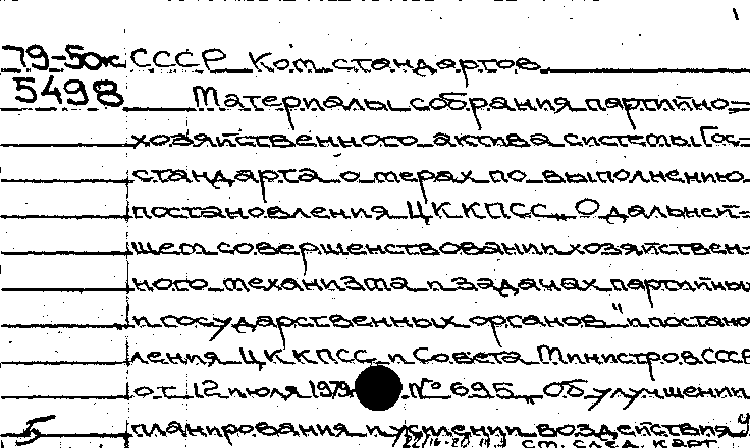 79-50к СССР Ком. стандартов.
5498 Материалы собрания партийно-
хозяйственного актива системы Гос-
стандарта о мерах по выполнению
постановления ЦК КПСС „О дальней-
шем совершенствовании хозяйствен-
ного механизма и задачах партийных
и государственных органов" и постано
ления ЦК ККПСС и Совета Министров СССР
от 12 июля 1979 № 695 „Об улучшении
5 планирования и усилении воздействия
см. след. карт.